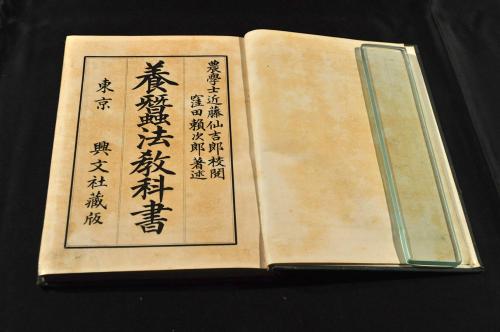 農學士近藤仙吉郎校閲
窪田賴次郎著述
養蠶法敎科書
東京 興文社藏版